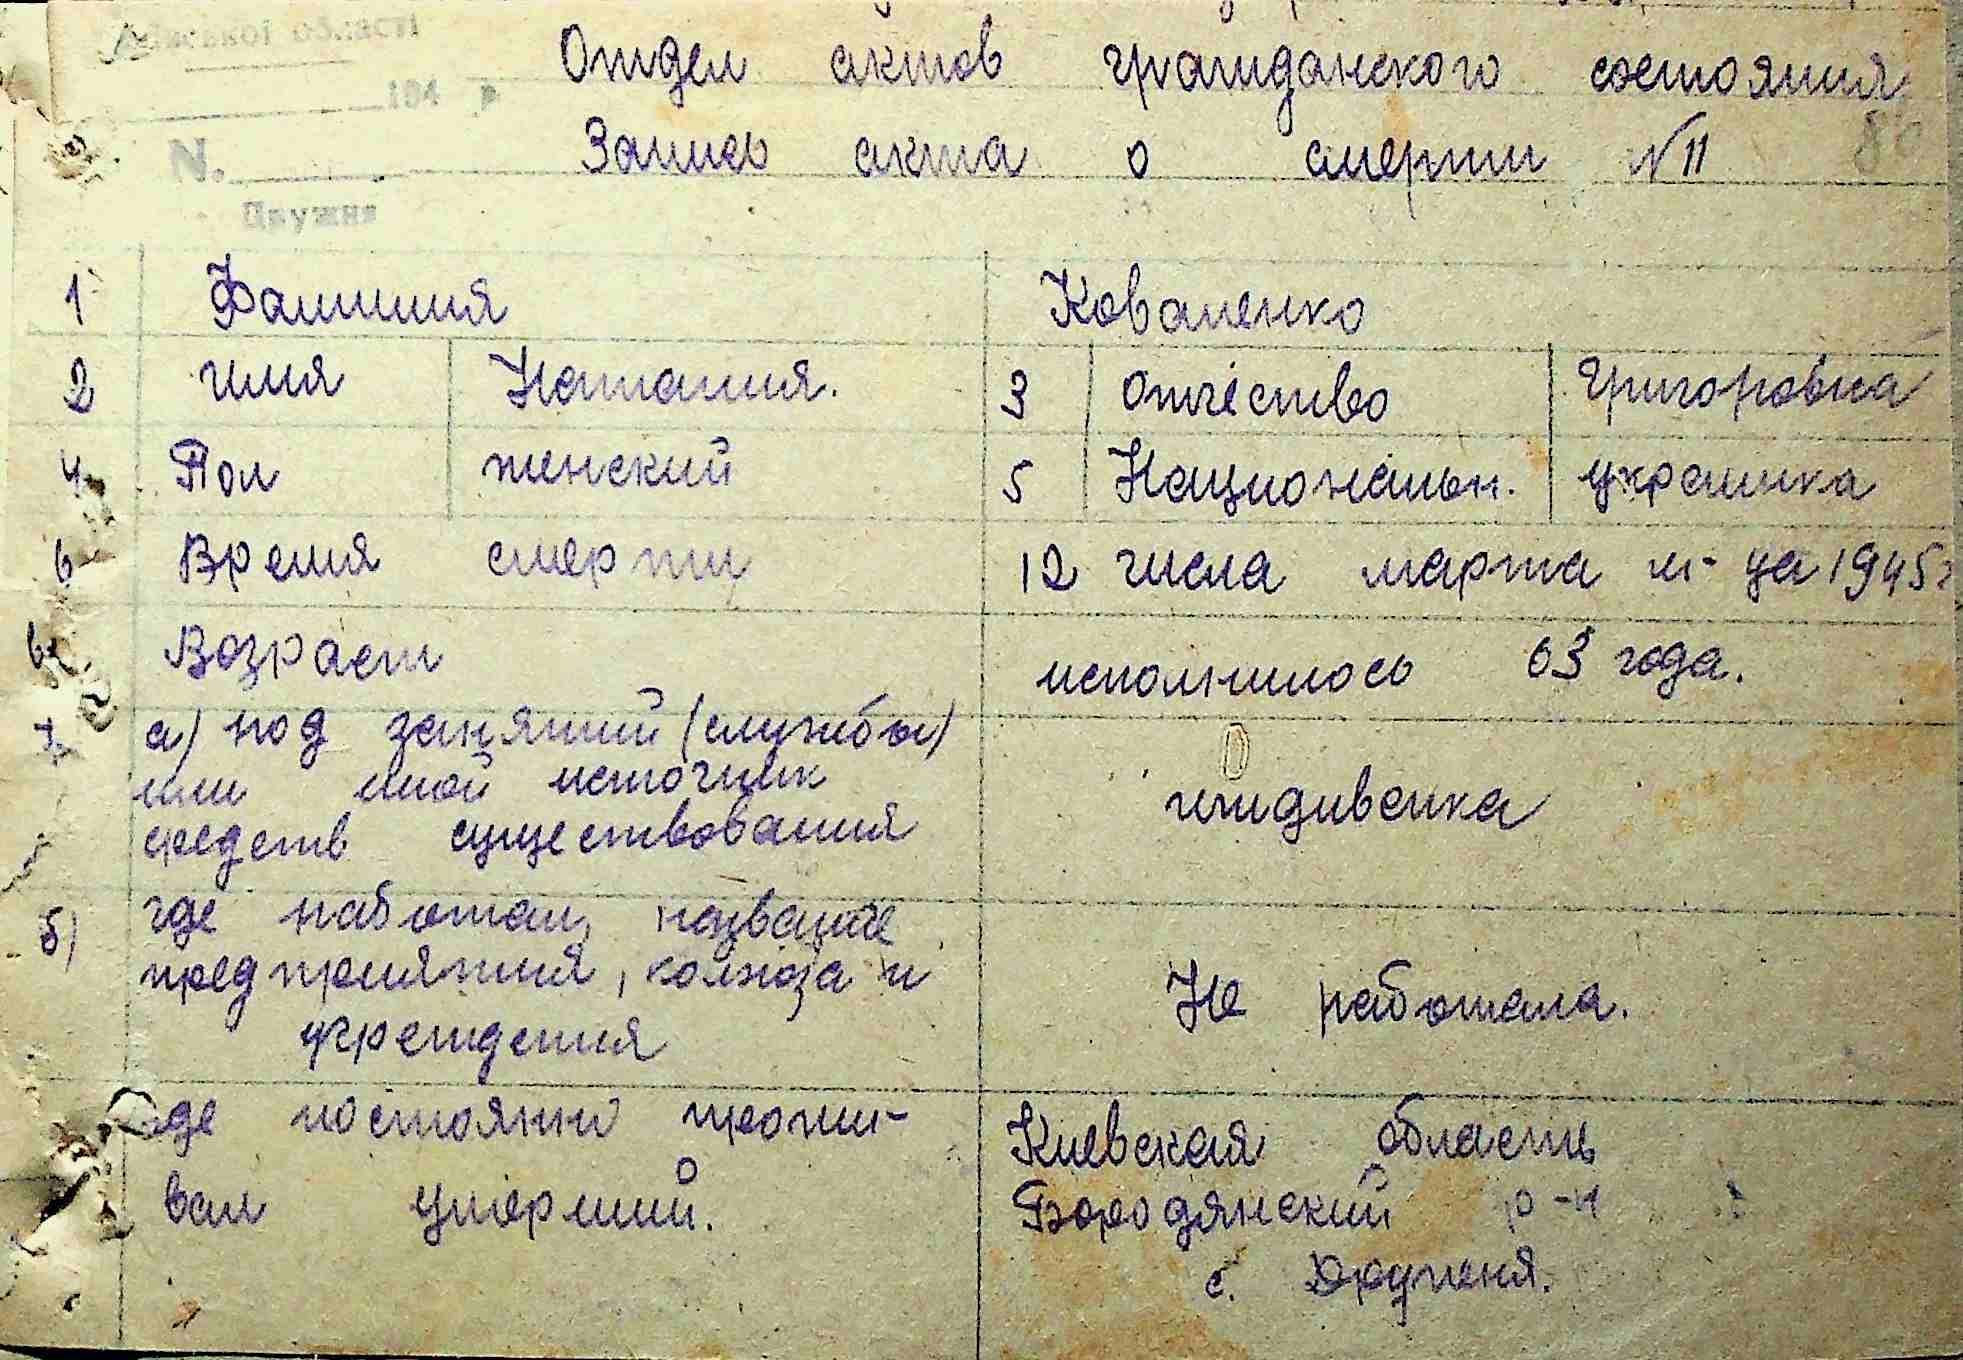 ської області
194 р
N.
Дружня
Отдел актов гражданского состояния
Запись акта о смерти №11
1 Фамилия Коваленко
2 имя Наталия. 3 отчество Григоровна
4 Пол женский 5 Национальн. украинка
6 Время смерти 12 числа марта м-ца 1945г
6 Возраст исполнилось 63 года.
7 а) род занятий (службы)
или иной источник
средств существования
иждивенка
б) где работал, название
предприятия, колхоза и
учреждения
Не работала.
где постоянно прожи-
вал умерший.
Киевская область
Бородянский р-н
с. Дружня.